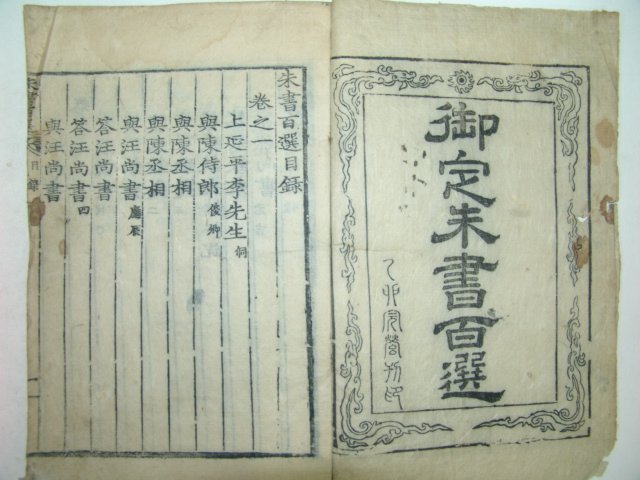 御定朱書百選
乙卯完營刊印
朱書百選目錄
卷之一
上延平李先生 侗
與陳侍郎 俊卿
與陳丞相
與陳丞相
與汪尚書 應辰
答汪尚書
答汪尚書 四
與汪尚書
目錄
一